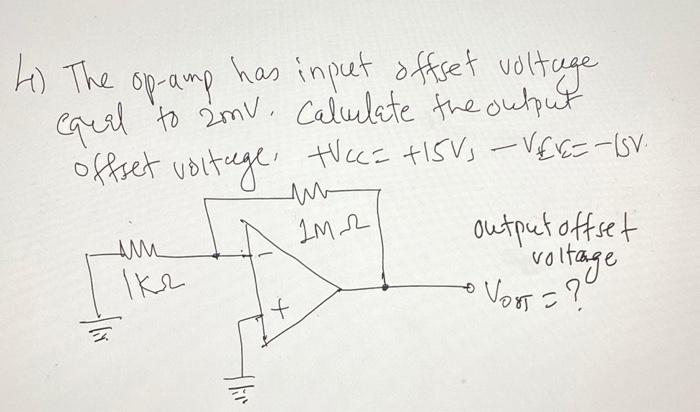 4) The op-amp has input offset voltage
equal to 2mV. Calculate the output
offset voltage. +VCC = +15V, -VEE = -15V.
1MΩ
output offset
voltage
1KΩ
-
+
VOUT = ?